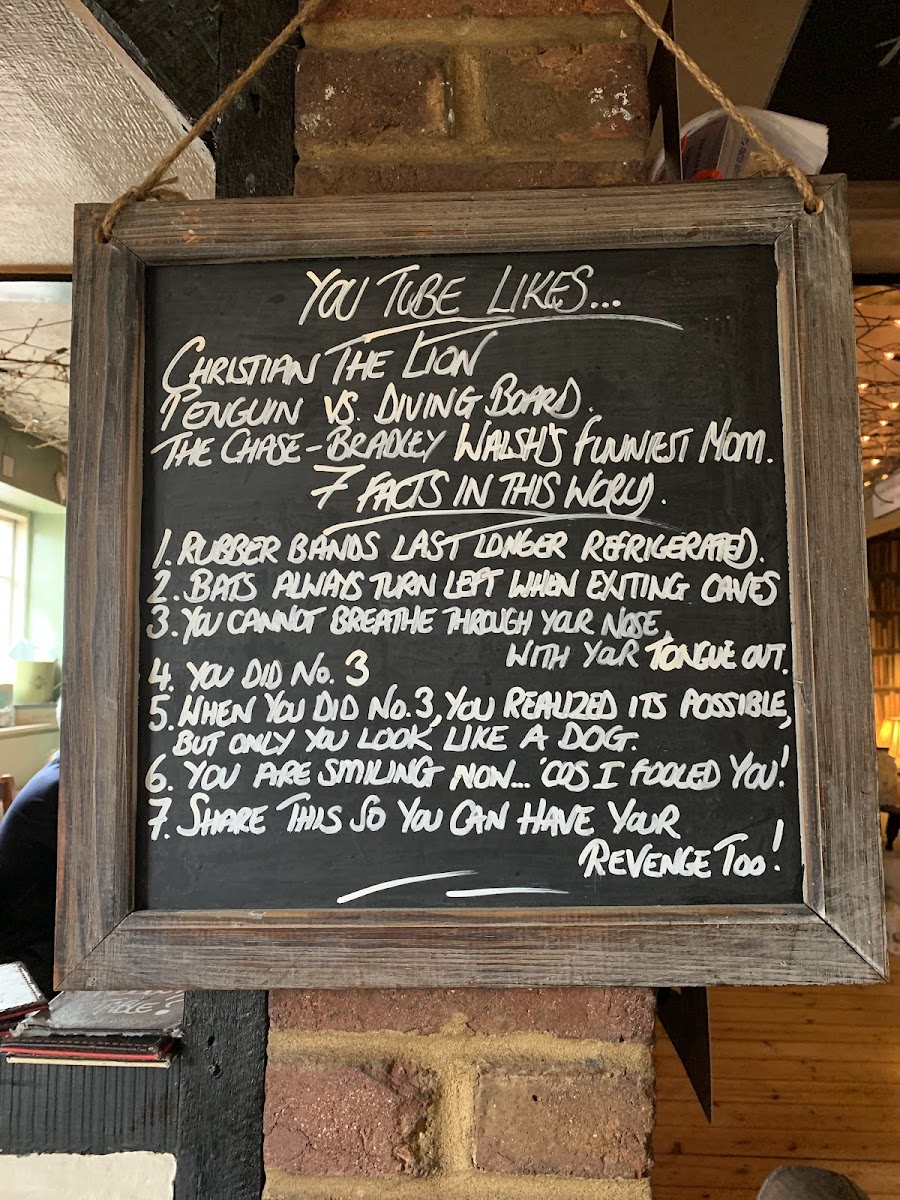 YOU TUBE LIKES...
CHRISTIAN THE LION
PENGUIN VS. DIVING BOARD.
THE CHASE - BRADLEY WALSH'S FUNNIEST MOM.
7 FACTS IN THIS WORLD.
1. RUBBER BANDS LAST LONGER REFRIGERATED.
2. BATS ALWAYS TURN LEFT WHEN EXITING CAVES
3. YOU CANNOT BREATHE THROUGH YOUR NOSE
WITH YOUR TONGUE OUT.
4. YOU DID No. 3
5. WHEN YOU DID No. 3, YOU REALIZED ITS POSSIBLE,
BUT ONLY YOU LOOK LIKE A DOG.
6. YOU ARE SMILING NOW... 'COS I FOOLED YOU!
7. SHARE THIS SO YOU CAN HAVE YOUR
REVENGE TOO!